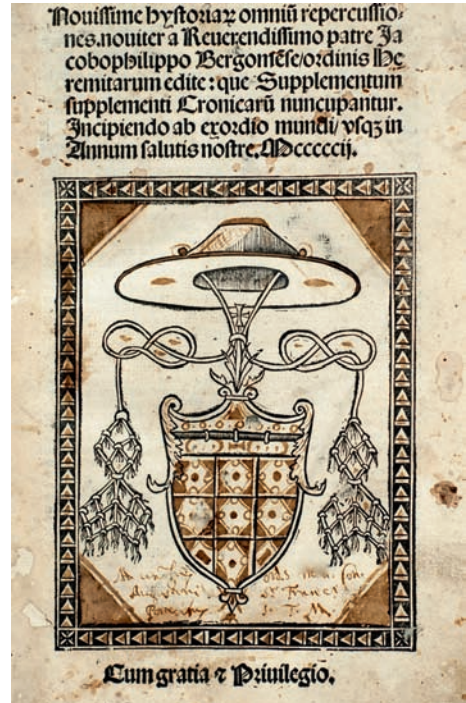 Nouissime hystoriaꝝ omniũ repercussio-
nes.nouiter a Reuerendissimo patre Ja
cobophilippo Bergomẽse/ordinis He
remitarum edite: que Supplementum
supplementi Cronicarũ nuncupantur.
Incipiendo ab exordio mundi/vsqꝫ in
Annum salutis nostre.Mcccccij.
Cum gratia ⁊ Priuilegio.